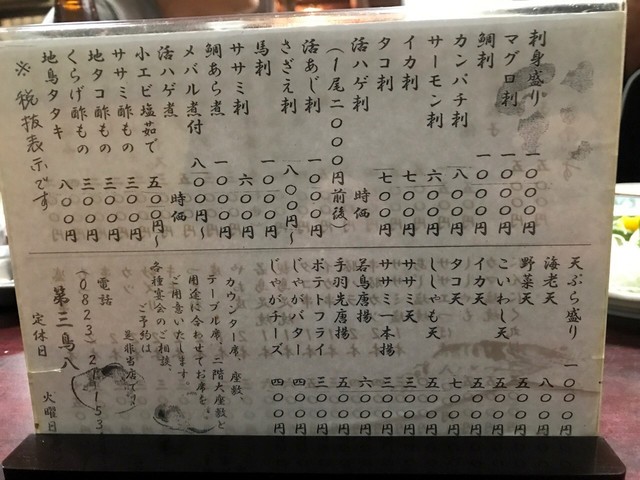 刺身盛り 一〇〇〇円
マグロ刺 一〇〇〇円
鯛刺 一〇〇〇円
カンパチ刺 八〇〇円
サーモン刺 六〇〇円
イカ刺 七〇〇円
タコ刺 七〇〇円
活ハゲ刺 時価
(一尾二〇〇〇円前後)
活あじ刺 一〇〇〇円
さざえ刺 八〇〇円〜
馬刺 一〇〇〇円
ササミ刺 六〇〇円
鯛あら煮 一〇〇〇円
メバル煮付 八〇〇円〜
活ハゲ煮 時価
小エビ塩茹で 五〇〇円〜
ササミ酢もの 三〇〇円
地タコ酢もの 三〇〇円
くらげ酢もの 三〇〇円
地鳥タタキ 八〇〇円
※税抜表示です
天ぷら盛り 一〇〇〇円
海老天 八〇〇円
野菜天 五〇〇円
こいわし天 五〇〇円
イカ天 五〇〇円
タコ天 七〇〇円
ししゃも天 五〇〇円
ササミ天 五〇〇円
ササミ一本揚 三〇〇円
若鳥唐揚 六〇〇円
手羽先唐揚 五〇〇円
ポテトフライ 三〇〇円
じゃがバター 四〇〇円
じゃがチーズ 四〇〇円
カウンター席、座敷、
テーブル席、二階大座敷と
用途に合わせてお席を
ご用意いたします。
各種宴会のご相談、
ご予約は
是非当店で
電話
(0823)
第三鳥八
定休日 火曜日